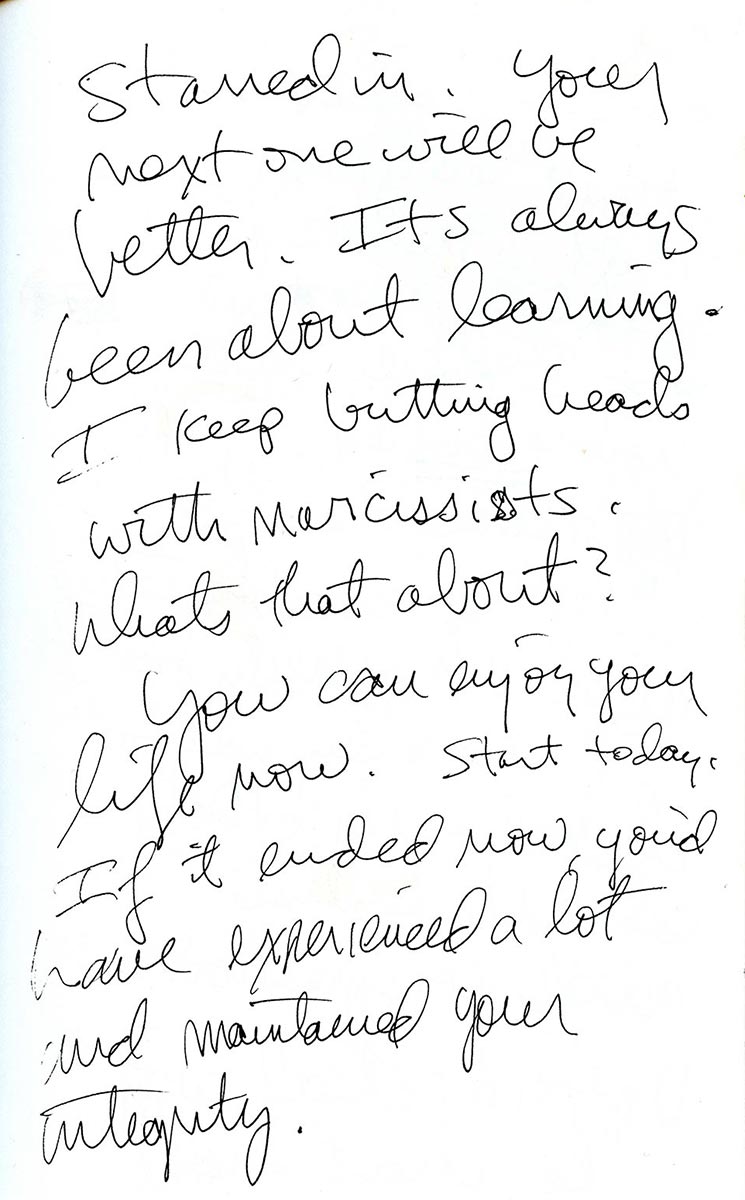 Starred in. Your
next one will be
better. Its always
been about learning.
I keep butting heads
with narcissists.
Whats that about?
You can enjoy your
life now. Start today.
If it ended now, you'd
have experienced a lot
and maintained your
integrity.